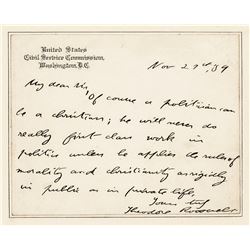 United States
Civil Service Commission,
Washington, D.C.
Nov 21st, 89
My dear Sir,
Of course a politician can
be a christian; he will never do
really first class work in
politics unless he applies the rules of
morality and christianity as rigidly
in public as in private life,
Yours truly
Theodore Roosevelt